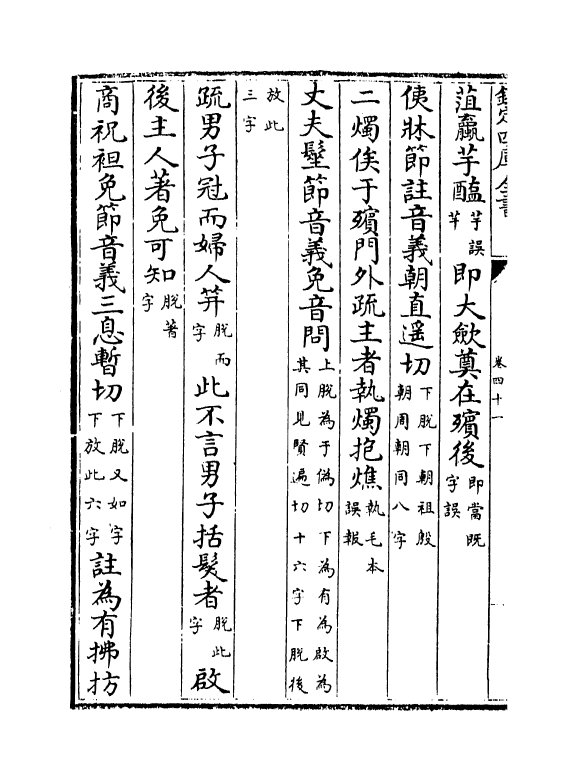 欽定四庫全書
卷四十一
菹蠃芋醢芋誤芊即大斂奠在殯後即當既字誤
侇牀節註音義朝直遥切下脫下朝祖殷朝周朝同八字
二燭俟于殯門外疏主者執燭抱燋執毛本誤報
丈夫髽節音義免音問上脫為于偽切下為有為啟為其同見賢遍切十六字下脫後
放此三字
疏男子冠而婦人笄脫而字此不言男子括髮者脫此字啟
後主人著免可知脫著字
商祝袒免節音義三息暫切下脫又如字下放此六字註為有拂扐